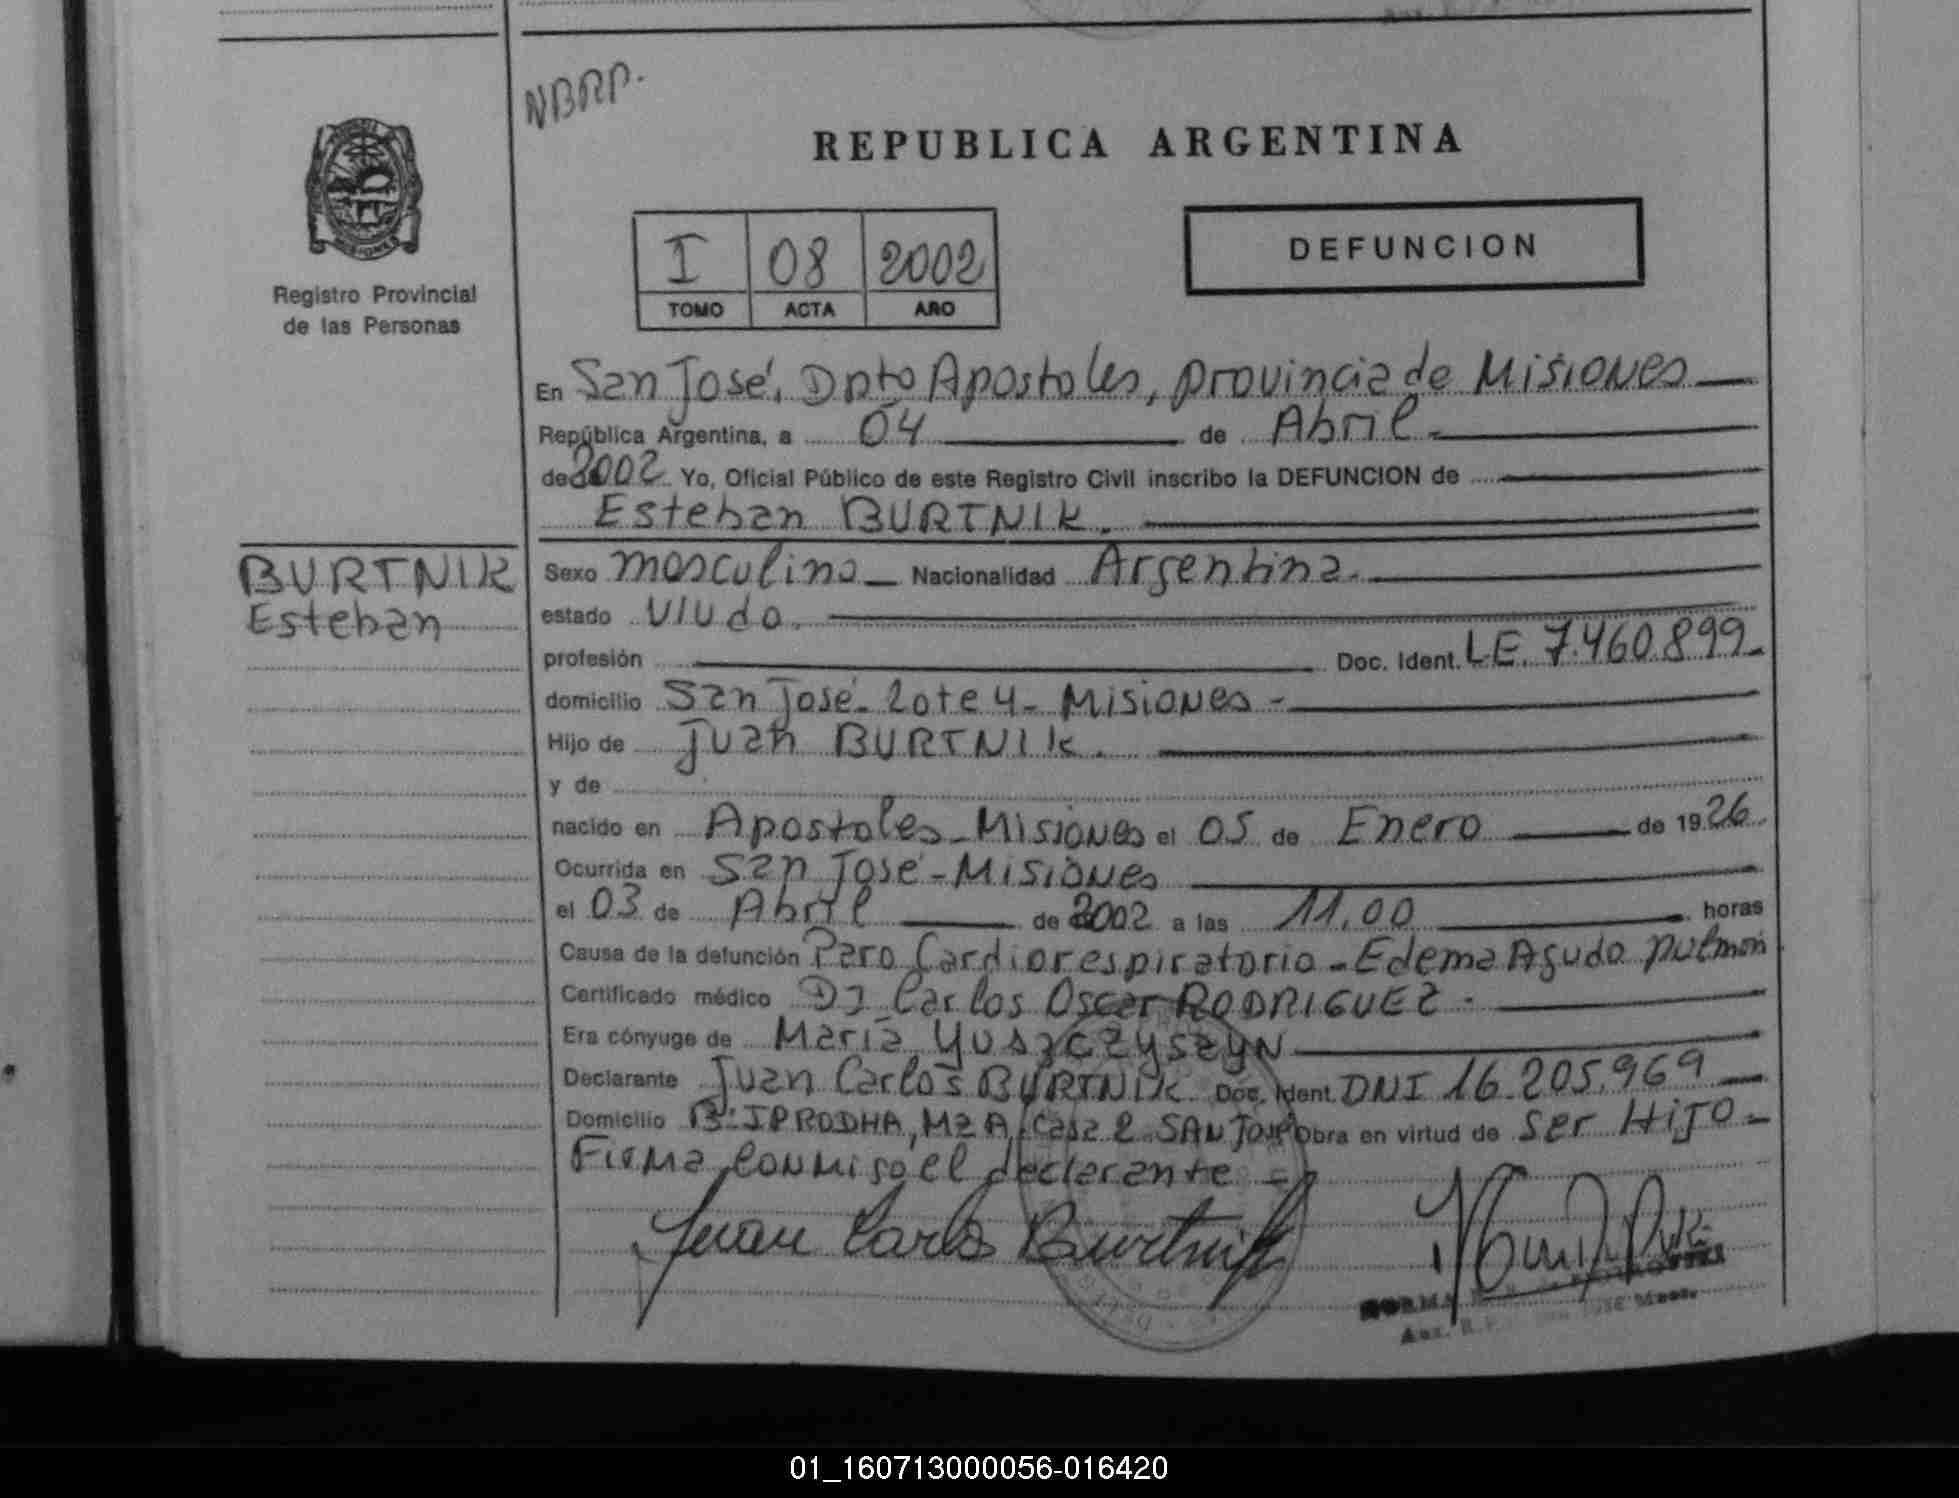 NBRP.
REPUBLICA ARGENTINA
MISIONES
Registro Provincial
de las Personas
I 08 2002
TOMO ACTA AÑO
DEFUNCION
En San José, Dpto Apostoles, provincia de Misiones
República Argentina, a 04 de Abril
de 2002 Yo, Oficial Público de este Registro Civil inscribo la DEFUNCION de
Esteban BURTNIK.
BURTNIK
Esteban
Sexo masculino Nacionalidad Argentina.
estado Viudo.
profesión Doc. Ident. LE. 7.460.899
domicilio San José - Lote 4 - Misiones -
Hijo de Juan BURTNIK.
y de
nacido en Apostoles - Misiones el 05 de Enero de 1926
Ocurrida en San José - Misiones
el 03 de Abril de 2002 a las 11,00 horas
Causa de la defunción Paro Cardiorespiratorio - Edema Agudo pulmon
Certificado médico Dr Carlos Oscar RODRIGUEZ.
Era cónyuge de Maria YUSZCZYSZYN
Declarante Juan Carlos BURTNIK Doc. Ident. DNI 16.205.969
Domicilio B: IPRODHA, MZ A, Casa 2 SAN José Obra en virtud de ser HIJO -
Firma conmigo el declarante =
Juan Carlos Burtnik
NORMA
Aux. R.P.
01_160713000056-016420